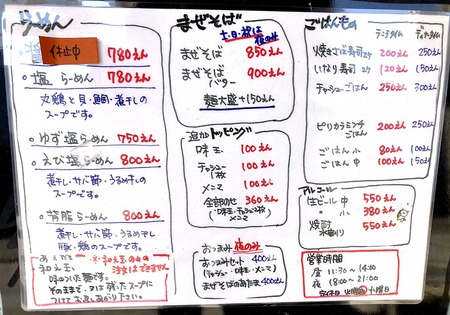 らーめん
休止中 780えん
塩らーめん 780えん
丸鶏と貝・鯛・煮干しの
スープです。
ゆず塩らーめん 750えん
えび塩らーめん 800えん
煮干し・サバ節・うるめ干しの
スープです。
背脂らーめん 800えん
煮干し・サバ節・うるめ干し
豚・鶏のスープです。
あえ玉
和え玉
※和え玉のみの
注文はできません
味のついた麺です。
そのままで、又は残ったスープに
つけてお召し上がり下さい。
まぜそば
土・日・祝は
夜のみ
まぜそば 850えん
まぜそば
バター 900えん
麺大盛+150えん
追加トッピング
味玉 100えん
チャーシュー
1枚 100えん
メンマ 100えん
全部のせ 360えん
(味玉・チャーシュー2枚
メンマ)
おつまみ 夜のみ
おつまみセット 400えん
(チャーシュー・味玉・メンマ)
まぜそばのあたま 400えん
ごはんもの
ランチタイム ディナータイム
焼きさば寿司 2ケ 200えん 250えん
いなり寿司 2ケ 120えん 150えん
チャーシューごはん 250えん 300えん
ピリカラミンチ
ごはん 200えん 250えん
ごはん 小 80えん 100えん
ごはん 中 100えん 150えん
アルコール
生ビール 中 550えん
〃 小 380えん
焼酎 550えん
水割り
営業時間
昼 11:30~14:00
夜 18:00~21:00
定休日 火曜日